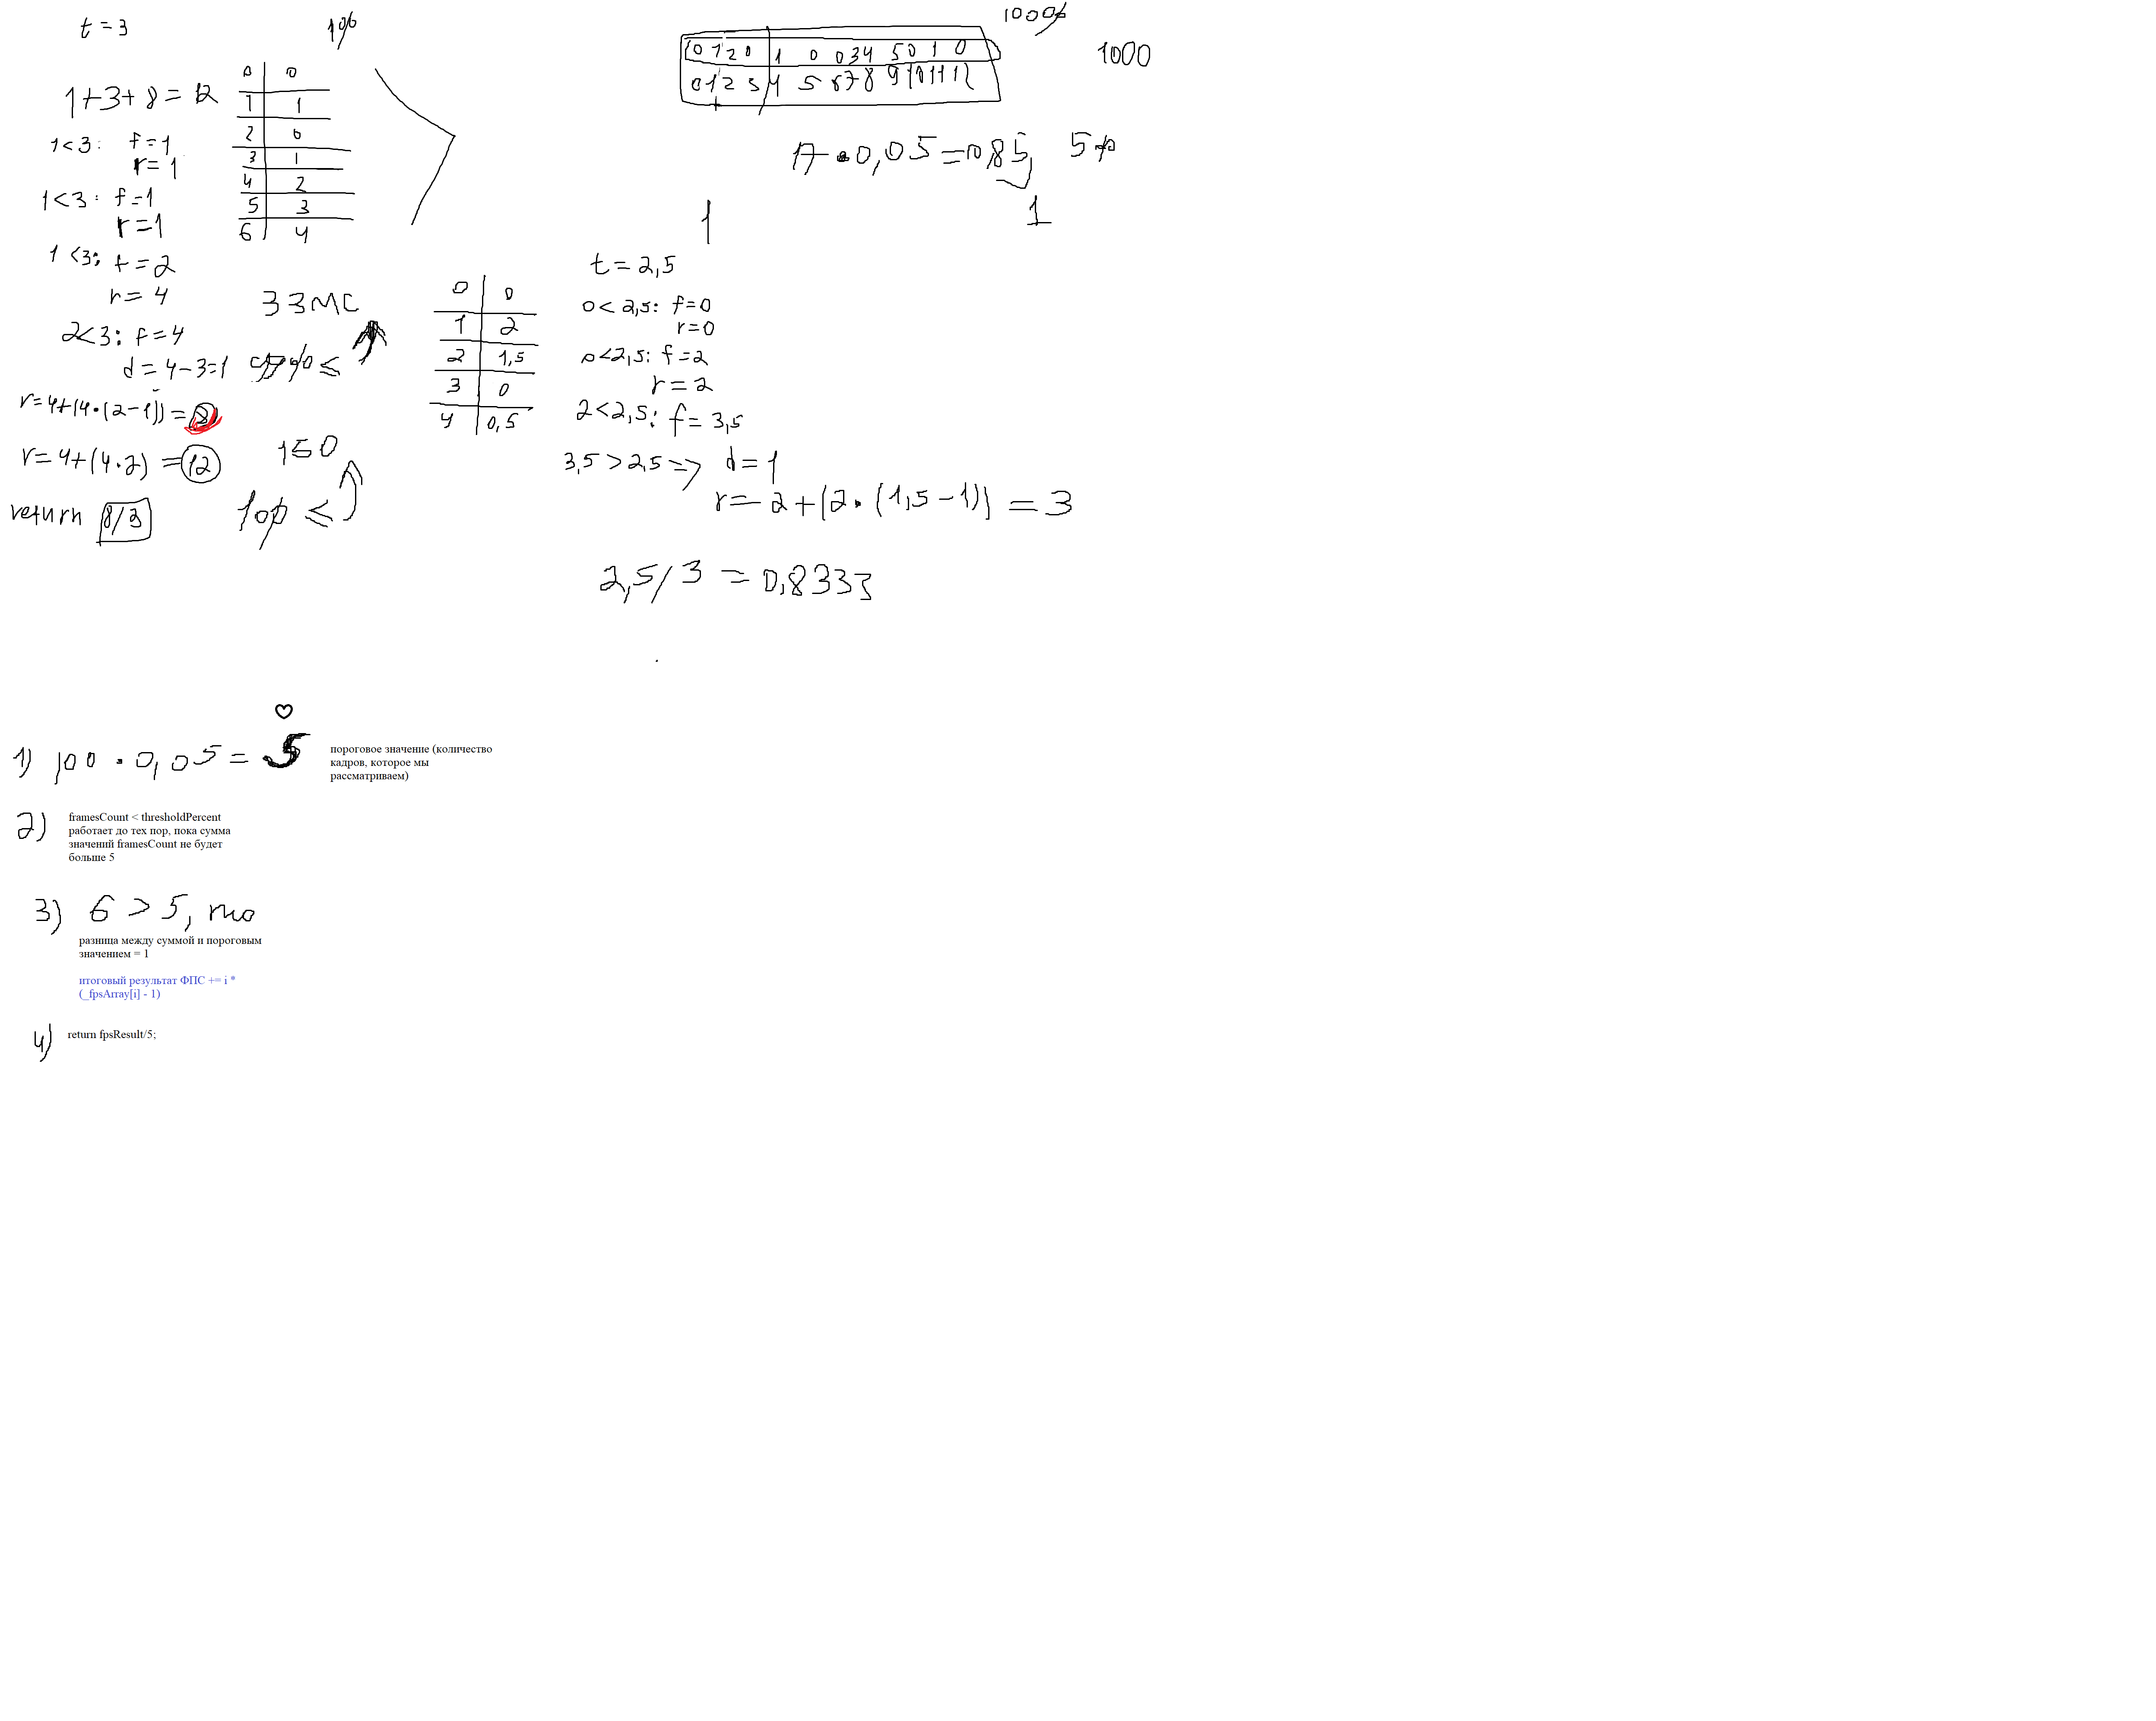 t = 3
1%
1+3+8 = 12
0 0
1 1
2 0
3 1
4 2
5 3
6 4
1<3: f=1
r=1
1<3: f=1
r=1
1<3: f=2
r=4
2<3: f=4
d=4-3=1
r=4+(4·(2-1))=8
r=4+(4·2)=12
return 8/3
33мс
≤
150
≤
0 0
1 2
2 1,5
3 0
4 0,5
1000
0 1 2 0 1 0 0 3 4 5 0 1 0
0 1 2 3 4 5 6 7 8 9 10 11 12
17·0,05=0,85
5%
1
1
t=2,5
0<2,5: f=0
r=0
0<2,5: f=2
r=2
2<2,5: f=3,5
3,5>2,5=> d=1
r=2+(2·(1,5-1))=3
2,5/3=0,8333
1) 100·0,05=5
пороговое значение (количество
кадров, которое мы
рассматриваем)
2)
framesCount < thresholdPercent
работает до тех пор, пока сумма
значений framesCount не будет
больше 5
3) 6 > 5, то
разница между суммой и пороговым
значением = 1
итоговый результат ФПС += i *
(_fpsArray[i] - 1)
4) return fpsResult/5;